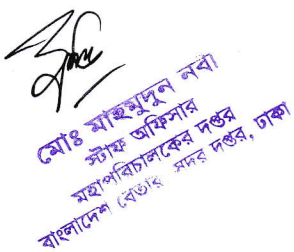 মোঃ মাহমুদুন নবী
স্টাফ অফিসার
মহাপরিচালকের দপ্তর
বাংলাদেশ বেতার সদর দপ্তর, ঢাকা